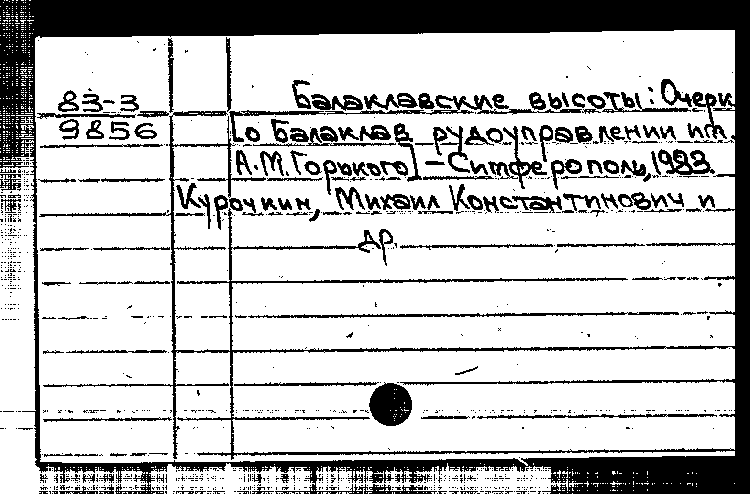 83-3 Балаклавские высоты: Очерк
9856 [о Балаклав рудоуправлении им.
А.М. Горького] – Симферополь, 1983.
Курочкин, Михаил Константинович и
др.